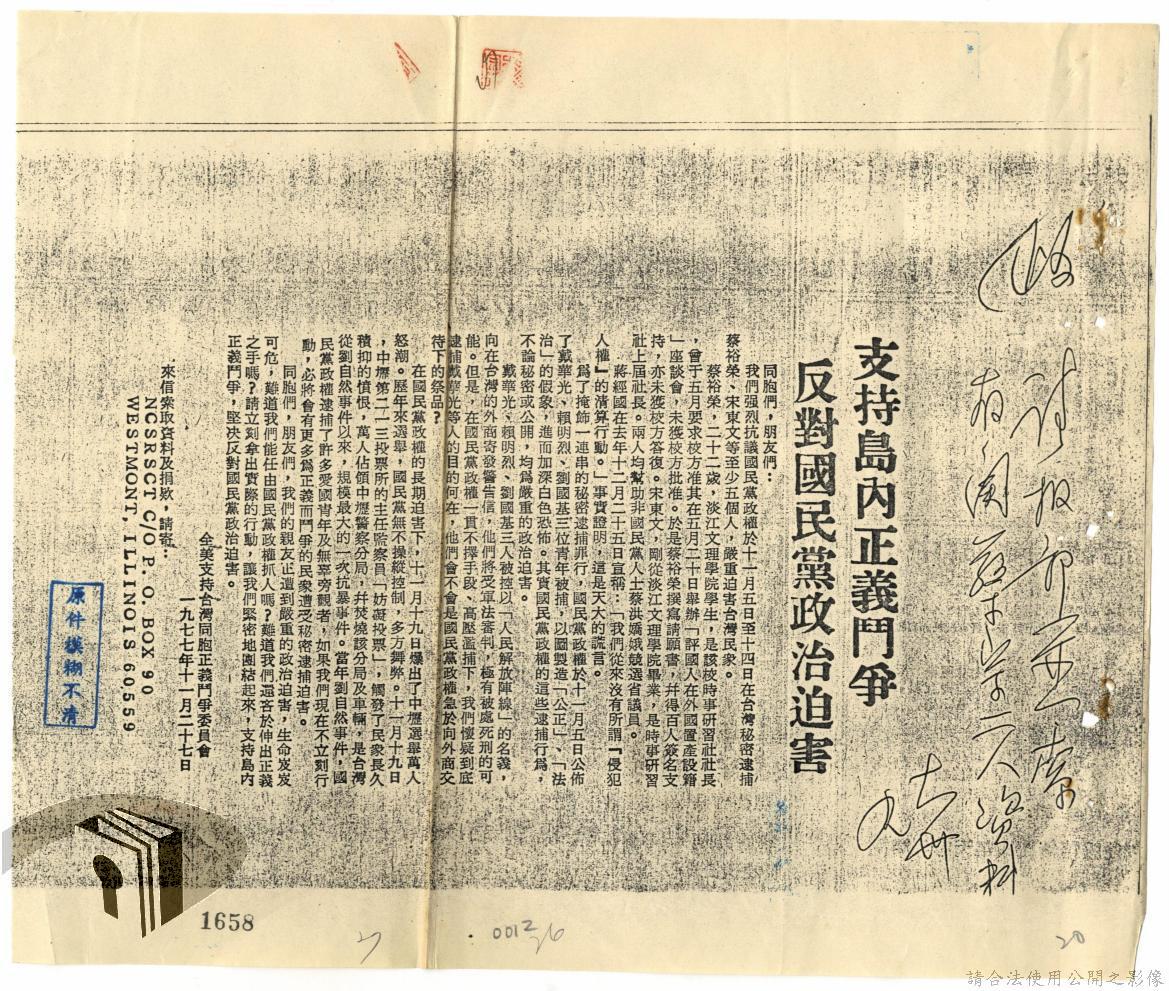 二人資料
支持島內正義鬥爭
反對國民黨政治迫害
同胞們,朋友們:
我們强烈抗議國民黨政權於十一月五日至十四日在台灣秘密逮捕
蔡裕榮、宋東文等至少五個人,嚴重迫害台灣民衆。
蔡裕榮,二十二歲,淡江文理學院學生,是該校時事研習社社長
,曾于五月要求校方准其在五月二十日舉辦「評國人在外國置產設籍
」座談會,未獲校方批准。於是蔡裕榮撰寫請願書,幷得百人簽名支
持,亦未獲校方答復。宋東文,剛從淡江文理學院畢業,是時事研習
社上屆社長。兩人均幫助非國民黨人士蔡洪嬌娥競選省議員。
蔣經國在去年十二月二十五日宣稱:「我們從來沒有所謂『侵犯
人權』的清算行動。」事實證明,這是天大的謊言。
爲了掩飾一連串的秘密逮捕罪行,國民黨政權於十一月五日公佈
了戴華光、賴明烈、劉國基三位青年被捕,以圖製造「公正」、「法
治」的假象,進而加深白色恐怖。其實國民黨政權的這些逮捕行爲,
不論秘密或公開,均爲嚴重的政治迫害。
戴華光、賴明烈、劉國基三人被控以「人民解放陣線」的名義,
向在台灣的外商寄發警告信,他們將受軍法審判,極有被處死刑的可
能。但是,在國民黨政權一貫不擇手段、高壓濫捕下,我們懷疑到底
逮捕戴華光等人的目的何在,他們會不會是國民黨政權急於向外商交
待下的祭品?
在國民黨政權的長期迫害下,十一月十九日爆出了中壢選舉萬人
怒潮。歷年來選舉,國民黨無不操縱控制,多方舞弊。十一月十九日
,中壢第二一三投票所的主任監察員「妨礙投票」,觸發了民衆長久
積抑的憤恨,萬人佔領中壢警察分局,幷焚燒該分局及車輛,是台灣
從劉自然事件以來,規模最大的一次抗暴事件。當年劉自然事件,國
民黨政權逮捕了許多愛國青年及無辜旁觀者,如果我們現在不立刻行
動,必將會有更多爲正義而鬥爭的民衆遭受秘密逮捕迫害。
同胞們,朋友們,我們的親友正遭到嚴重的政治迫害,生命岌岌
可危,難道我們能任由國民黨政權抓人嗎?難道我們還吝於伸出正義
之手嗎?請立刻拿出實際的行動,讓我們緊密地團結起來,支持島內
正義鬥爭,堅决反對國民黨政治迫害。
全美支持台灣同胞正義鬥爭委員會
一九七七年十一月二十七日
來信索取資料及捐欵,請寄:
NCSRSCT C/O P.O. BOX 90
WESTMONT, ILLINOIS 60559
原件模糊不清
1658
0012
26
20
請合法使用公開之影像